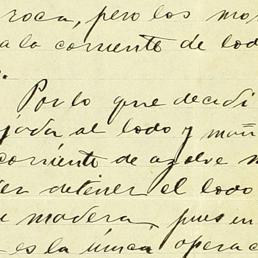 roca, pero los mo
a la corriente de lodo
Por lo que decidi
al lodo y mañ
corriente de azolve
detener el lodo
madera, pues en
es la única opera